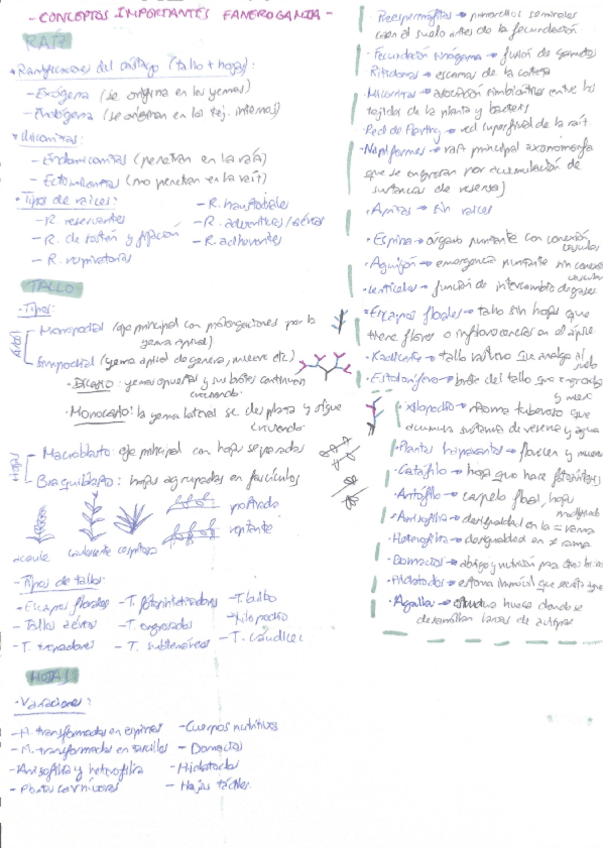 - CONCEPTOS IMPORTANTES FANEROGAMIA -
RAÍZ
• Ramificaciones del vástago (tallo + hojas):
- Exógena (se origina en las yemas)
- Endógena (se originan en los tej. internos)
• Micorrizas:
- Endomicorrizas (penetran en la raíz)
- Ectomicorrizas (no penetran en la raíz)
• Tipos de raíces:
- R. reservantes
- R. de sostén y fijación
- R. respiratorias
- R. haustoriales
- R. adventicias/aéreas
- R. adherentes
TALLO
- Tipos:
Monopodial (eje principal con prolongaciones por la
yema apical)
Simpodial (yema apical degenera, muere etc.)
• Dicasio: yemas opuestas y sus brotes continúan
creciendo.
• Monocasio: la yema lateral se desplaza y sigue
creciendo.
Hojas
Macroblasto: eje principal con hojas separadas
Braquiblasto: hojas agrupadas en fascículos
acaule caulescente cespitosa
postrado
reptante
- Tipos de tallo:
- Escapos florales
- Tallos aéreos
- T. trepadores
- T. fotosintetizadores
- T. engrosados
- T. subterráneos
- T. bulbo
- Xilopodio
- T. caudice
HOJAS
• Variaciones:
- H. transformadas en espinas
- H. transformadas en zarcillos
- Anisofilia y heterofilia
- Plantas carnívoras
- Cuerpos nutritivos
- Domacios
- Hidatodos
- Hojas táctiles
• Preespermáfitas → primordios seminales
caen al suelo antes de la fecundación
• Fecundación → fusión de gametos
Ritidoma → escamas de la corteza
• Micorrizas → asociación simbiótica entre los
tejidos de la planta y
Red de → red superficial de la raíz
• Napiformes → raíz principal axonomorfa
que se engrosan por acumulación de
sustancias de reserva)
• Arrizas → sin raíces
• Espina → órgano punzante con conexión
vascular
• Aguijón → emergencia punzante sin conexión
vascular
• Lenticelas → función de intercambio de gases
• Escapos florales → tallo sin hojas que
tiene flores o inflorescencias en el ápice
• → tallo que al
• Estolonífero → brote del tallo que
y
• Xilopodio → rizoma tuberoso que
acumula sustancia de reserva y agua
• Plantas hapaxantes → florecen y mueren
• Catáfilo → hoja que hace
• Antófilo → carpelo floral, hojas
modificadas
• Anisofilia → desigualdad en la = rama
• Heterofilia → desigualdad en ≠ rama
• Domacios → abrigo y nutrición para
• Hidatodos → estoma inmóvil que secreta agua
• Agallas → estructura hueca donde se
desarrollan larvas de avispas